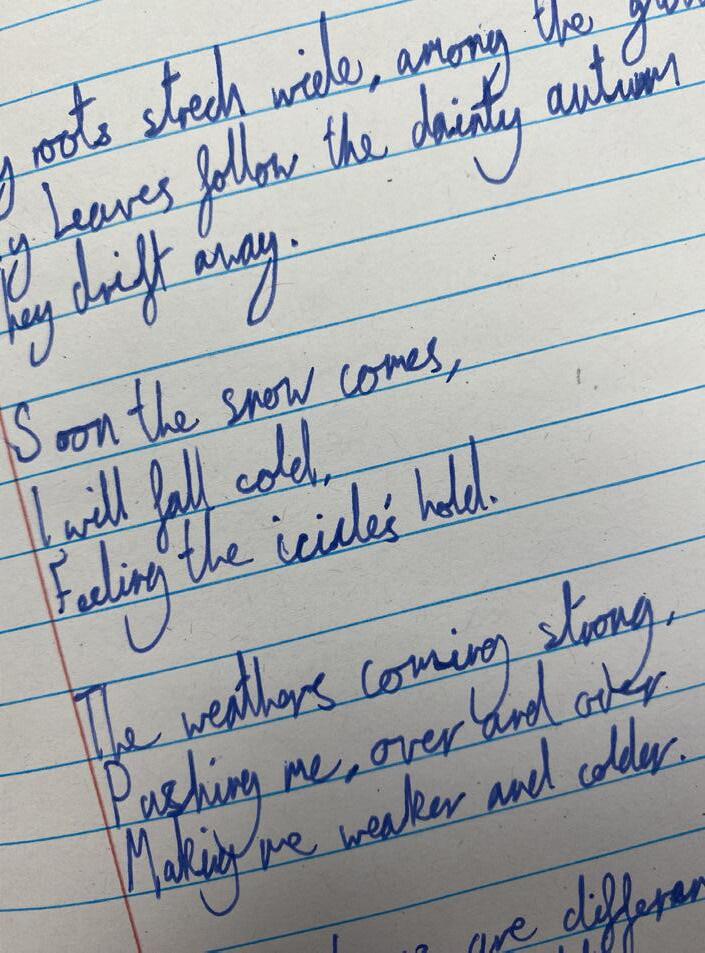 roots strech wide, among the
Leaves follow the dainty autumn
hey drift away.
Soon the snow comes,
I will fall cold,
Feeling the icicle's hold.
The weathers coming strong,
Pushing me, over and over
Making me weaker and colder.
are differen